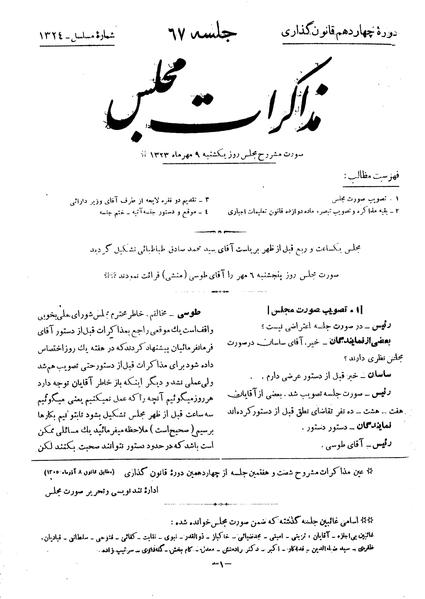 دورهٔ چهاردهم قانون‌گذاری
جلسه ۶۷
شمارهٔ مسلسل - ۱۳۲۴
مذاکرات مجلس
صورت مشروح مجلس روز یکشنبه ۹ مهر ماه ۱۳۲۳
فهرست مطالب:
۱ - تصویب صورت مجلس
۲ - بقیه مذاکره و تصویب تبصره ماده دوازده قانون تعلیمات اجباری
۳ - تقدیم دو فقره لایحه از طرف آقای وزیر دارائی
۴ - موقع و دستور جلسه آتیه - ختم جلسه
مجلس یکساعت و ربع قبل از ظهر بریاست آقای سید محمد صادق طباطبائی تشکیل گردید
صورت مجلس روز پنجشنبه ۶ مهر را آقای طوسی (منشی) قرائت نمودند
۱ - تصویب صورت مجلس
رئیس - در صورت جلسه اعتراضی نیست؟
بعضی از نمایندگان - خیر. آقای ساسان در صورت
مجلس نظری دارند؟
ساسان - خیر قبل از دستور عرضی دارم.
رئیس - صورت جلسه تصویب شد. بعضی از آقایان
هفت .. هشت .. ده نفر تقاضای نطق قبل از دستور کرده‌اند
نمایندگان - دستور دستور.
رئیس - آقای طوسی.
طوسی - مخالفم. خاطر محترم مجلس شورای ملی بخوبی
واقف است یك موقعی راجع بمذاکرات قبل از دستور آقای
فرمانفرمائیان پیشنهاد کردند که در هفته یك روز اختصاص
داده شود برای مذاکرات قبل از دستور حتی تصویب هم شد
ولی عملی نشد و دیگر اینکه باز خاطر آقایان توجه دارد
هر روز میگوئیم آنچه را که عمل نمیکنیم یعنی میگوئیم
سه ساعت قبل از ظهر مجلس تشکیل بشود تا بتوانیم بکارها
برسیم (صحیح است) ملاحظه میفرمائید یك مسائلی ممکن
است باشد که در حدود دستور نتوانند صحبت بکنند لکن
عین مذاکرات مشروح شصت و هفتمین جلسه از چهاردهمین دورهٔ قانون گذاری (مطابق قانون ۸ آذرماه ۱۳۰۵)
ادارهٔ تندنویسی و تحریر صورت مجلس
اسامی غائبین جلسه گذشته که ضمن صورت مجلس خوانده شده:
غائبین بی‌اجازه - آقایان: تربتی - امینی - مجد ضیائی - خاکباز - ذوالقدر - نبوی - نقابت - کفائی - فتوحی - سلطانی - قبادیان -
ظفری - سید ضیاءالدین - فداکار - اکبر - دکتر رادمنش - معدل - کام بخش - گله‌داری - سرتیپ زاده -
-۱-